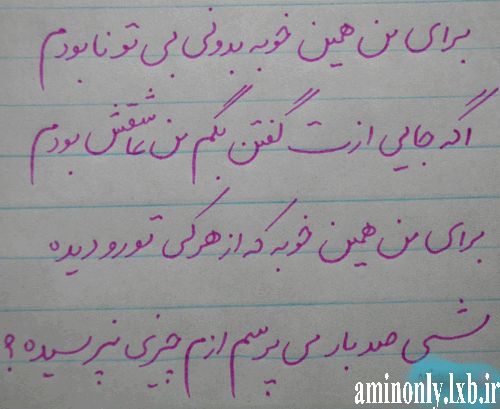 برای من همین خوبه بدونی بی تو نابودم
اگه جایی ازت گفتن بگم من عاشقش بودم
برای من همین خوبه که از هرکی تورو دیده
شبی صد بار می پرسم ازم چیزی نپرسیده؟
aminonly.lxb.ir